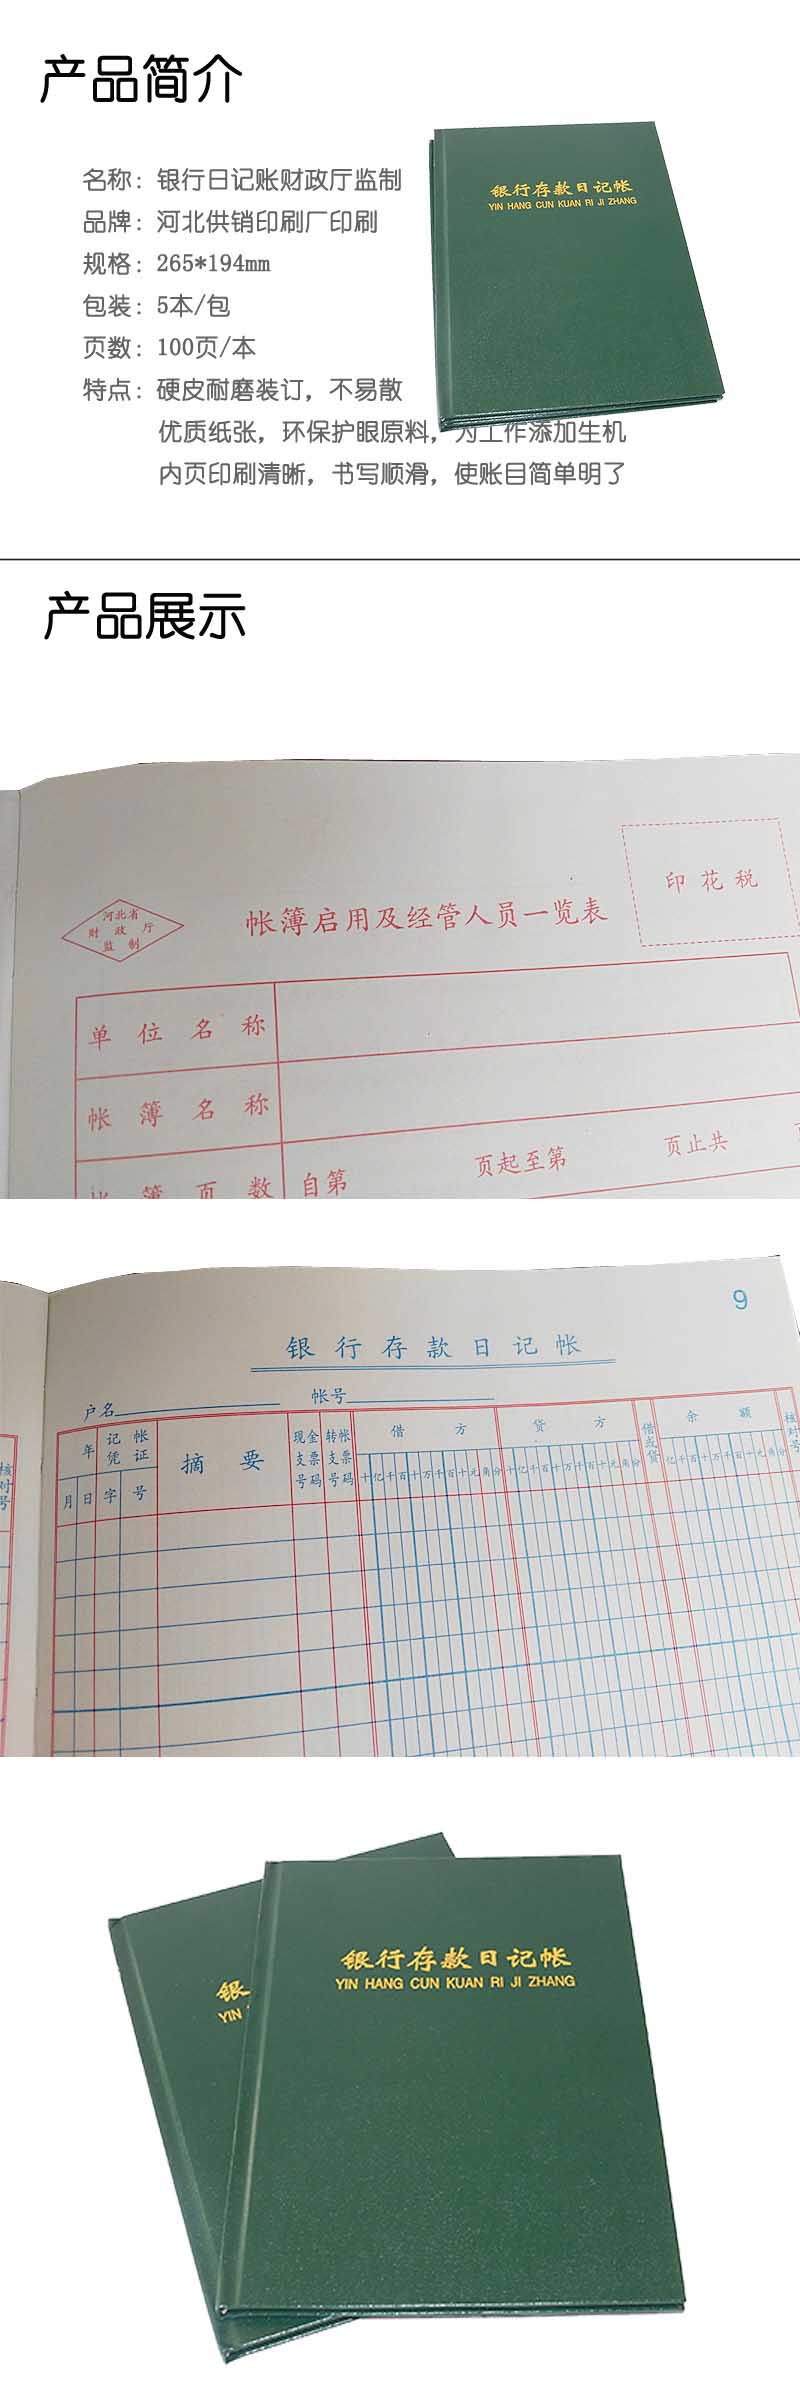 产品简介
名称：银行日记账财政厅监制
品牌：河北供销印刷厂印刷
规格：265*194mm
包装：5本/包
页数：100页/本
特点：硬皮耐磨装订，不易散
优质纸张，环保护眼原料，为工作添加生机
内页印刷清晰，书写顺滑，使账目简单明了
银行存款日记帐
YIN HANG CUN KUAN RI JI ZHANG
产品展示
印花税
河北省
财政厅
监制
帐簿启用及经管人员一览表
单位名称
帐簿名称
帐簿页数 自第 页起至第 页止共
9
银行存款日记帐
户名 帐号
年 记帐凭证 摘要 现金支票号码 转帐支票号码 借方 贷方 借或贷 余额 核对号
月 日 字 号 十亿千百十万千百十元角分 十亿千百十万千百十元角分 亿千百十万千百十元角分
核对号
银行存款日记帐
YIN HANG CUN KUAN RI JI ZHANG
银
YIN